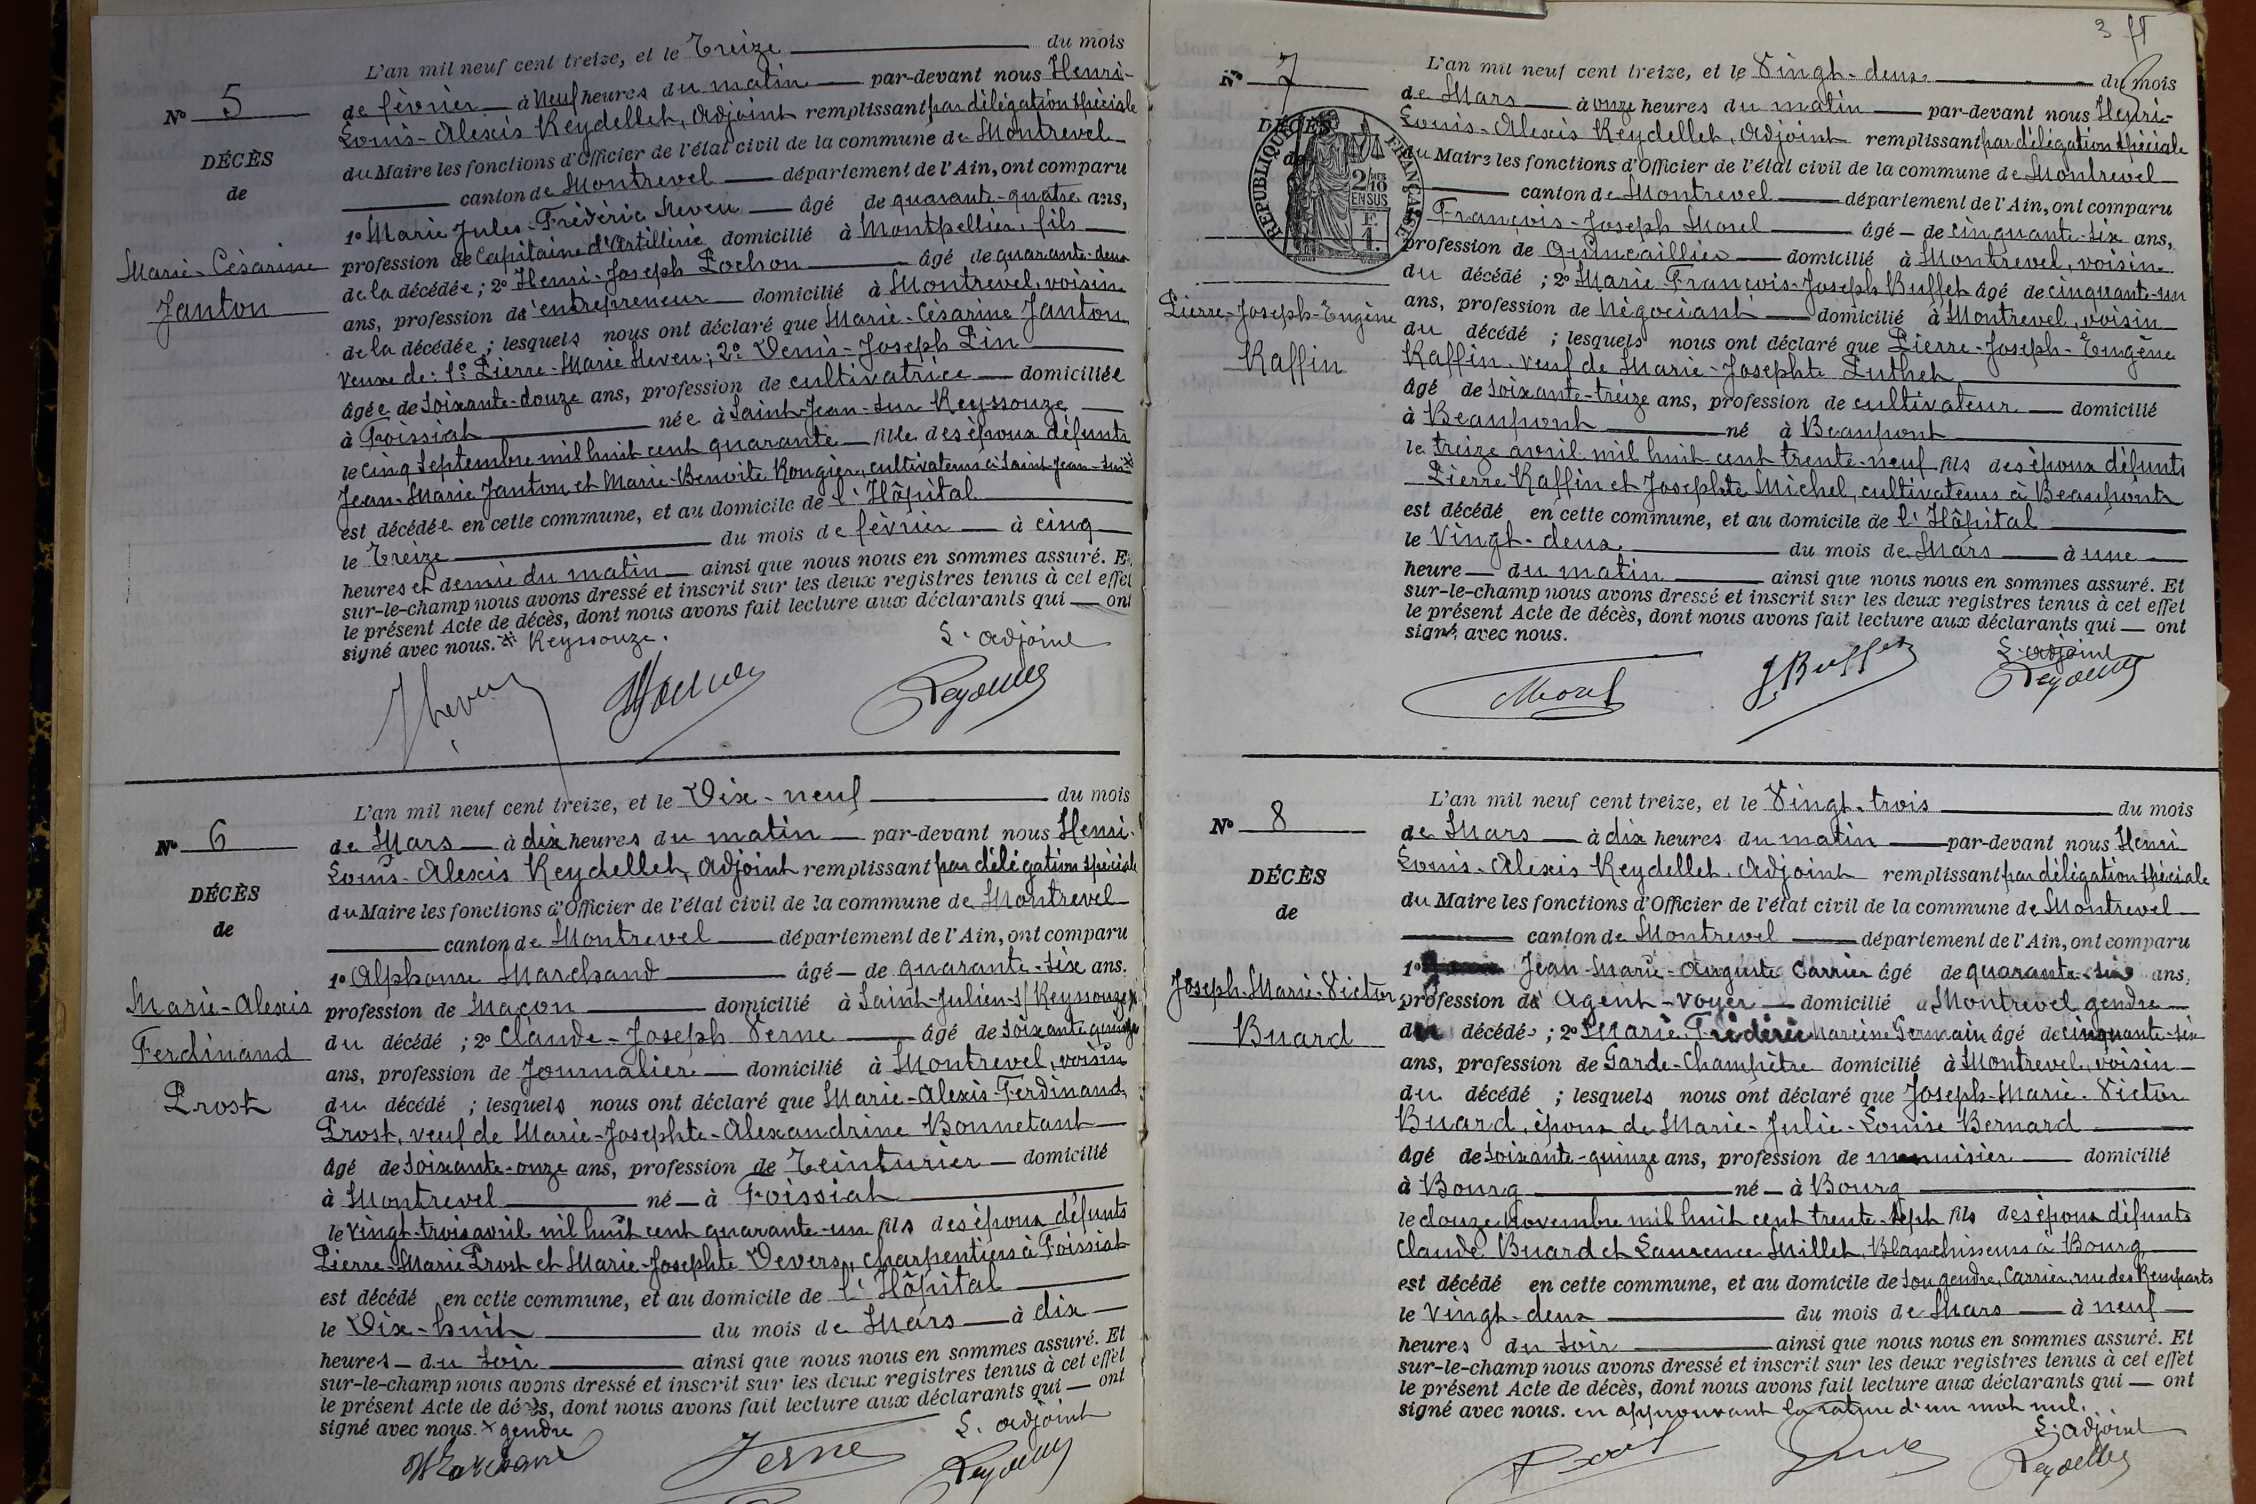 L'an mil neuf cent treize, et le Treize du mois
de février à Neuf heures du matin par-devant nous Henri-
Louis-Alexis Reydellet, Adjoint remplissant par délégation spéciale
du Maire les fonctions d'Officier de l'état civil de la commune de Montrevel
canton de Montrevel département de l'Ain, ont comparu
1º Marie Jules-Frédéric Neveu âgé de quarante-quatre ans,
profession de Capitaine d'Artillerie domicilié à Montpellier, fils
de la décédée ; 2º Henri-Joseph Lochon âgé de quarante-deux
ans, profession d'entrepreneur domicilié à Montrevel, voisin
de la décédée ; lesquels nous ont déclaré que Marie-Césarine Janton
veuve de : 1º Pierre-Marie Neveu ; 2º Denis-Joseph Pin
âgée de soixante-douze ans, profession de cultivatrice domiciliée
à Foissiat née à Saint-Jean-sur Reyssouze
le cinq septembre mil huit cent quarante fille des époux défunts
Jean-Marie Janton et Marie-Benoite Rougier, cultivateurs à Saint Jean-sur
est décédée en cette commune, et au domicile de l'Hôpital
le Treize du mois de février à cinq
heures et demie du matin ainsi que nous nous en sommes assuré. Et
sur-le-champ nous avons dressé et inscrit sur les deux registres tenus à cet effet
le présent Acte de décès, dont nous avons fait lecture aux déclarants qui ont
signé avec nous. Reyssouze.
L'adjoint
Reydellet
Nº 5
DÉCÈS
de
Marie-Césarine
Janton
L'an mil neuf cent treize, et le Dix-neuf du mois
de Mars à dix heures du matin par-devant nous Henri-
Louis-Alexis Reydellet, Adjoint remplissant par délégation spéciale
du Maire les fonctions d'Officier de l'état civil de la commune de Montrevel
canton de Montrevel département de l'Ain, ont comparu
1º Alphonse Marchand âgé de quarante-six ans.
profession de Maçon domicilié à Saint-Julien-s/Reyssouze x
du décédé ; 2º Claude-Joseph Verne âgé de soixante quinze
ans, profession de Journalier domicilié à Montrevel, voisin
du décédé ; lesquels nous ont déclaré que Marie-Alexis-Ferdinand
Prost, veuf de Marie-Josephte-Alexandrine Bonnetant
âgé de soixante-onze ans, profession de Teinturier domicilié
à Montrevel né à Foissiat
le vingt-trois avril mil huit cent quarante-un fils des époux défunts
Pierre-Marie Prost et Marie-Josephte Devers, charpentiers à Foissiat
est décédé en cette commune, et au domicile de l'Hôpital
le Dix-huit du mois de Mars à dix
heures du soir ainsi que nous nous en sommes assuré. Et
sur-le-champ nous avons dressé et inscrit sur les deux registres tenus à cet effet
le présent Acte de décès, dont nous avons fait lecture aux déclarants qui ont
signé avec nous. x gendre
L'adjoint
Marchand Verne Reydellet
Nº 6
DÉCÈS
de
Marie-Alexis
Ferdinand
Prost
3
L'an mil neuf cent treize, et le Vingt-deux du mois
de Mars à onze heures du matin par-devant nous Henri-
Louis-Alexis Reydellet, Adjoint remplissant par délégation spéciale
du Maire les fonctions d'Officier de l'état civil de la commune de Montrevel
canton de Montrevel département de l'Ain, ont comparu
François-Joseph Morel âgé de cinquante-six ans,
profession de Quincaillier domicilié à Montrevel, voisin
du décédé ; 2º Marie François-Joseph Buffet âgé de cinquante-un
ans, profession de Négociant domicilié à Montrevel, voisin
du décédé ; lesquels nous ont déclaré que Pierre-Joseph-Eugène
Raffin, veuf de Marie-Josephte Puthet
âgé de soixante-treize ans, profession de cultivateur domicilié
à Beaupont né à Beaupont
le treize avril mil huit cent trente-neuf fils des époux défunts
Pierre Raffin et Josephte Michel, cultivateurs à Beaupont
est décédé en cette commune, et au domicile de l'Hôpital
le Vingt-deux du mois de Mars à une
heure du matin ainsi que nous nous en sommes assuré. Et
sur-le-champ nous avons dressé et inscrit sur les deux registres tenus à cet effet
le présent Acte de décès, dont nous avons fait lecture aux déclarants qui ont
signé avec nous.
L'adjoint
Morel J. Buffet Reydellet
Nº 7
DÉCÈS
de
RÉPUBLIQUE FRANÇAISE
2/10 EN SUS
Pierre-Joseph-Eugène
Raffin
L'an mil neuf cent treize, et le Vingt-trois du mois
de Mars à dix heures du matin par-devant nous Henri
Louis-Alexis Reydellet, Adjoint remplissant par délégation spéciale
du Maire les fonctions d'Officier de l'état civil de la commune de Montrevel
canton de Montrevel département de l'Ain, ont comparu
1º Jean-Marie-Auguste Carrier âgé de quarante-six ans,
profession d'Agent-voyer domicilié à Montrevel gendre
du décédé ; 2º Marie Frédéric Narcisse Germain âgé de cinquante-six
ans, profession de Garde-Champêtre domicilié à Montrevel, voisin
du décédé ; lesquels nous ont déclaré que Joseph-Marie-Victor
Buard, époux de Marie-Julie-Louise Bernard
âgé de soixante-quinze ans, profession de menuisier domicilié
à Bourg né à Bourg
le douze Novembre mil huit cent trente-sept fils des époux défunts
Claude Buard et Laurence Millet, Blanchisseurs à Bourg
est décédé en cette commune, et au domicile de son gendre, Carrier, rue des Remparts
le Vingt-deux du mois de Mars à neuf
heures du soir ainsi que nous nous en sommes assuré. Et
sur-le-champ nous avons dressé et inscrit sur les deux registres tenus à cet effet
le présent Acte de décès, dont nous avons fait lecture aux déclarants qui ont
signé avec nous. en approuvant la rature d'un mot nul.
L'adjoint
Reydellet
Nº 8
DÉCÈS
de
Joseph-Marie-Victor
Buard